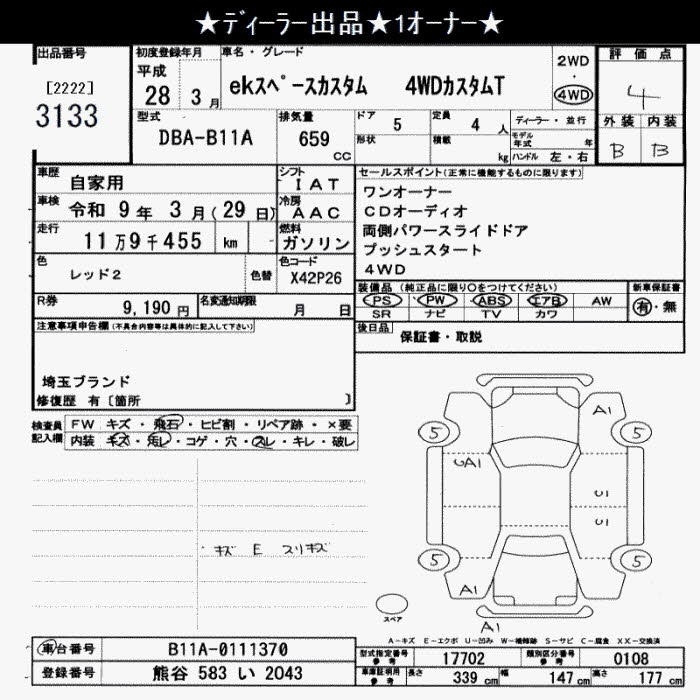 ★ディーラー出品★1オーナー★
出品番号
[2222]
3133
初度登録年月
平成
28 3月
車名・グレード
ekスペースカスタム 4WDカスタムT
2WD
・
4WD
評価点
4
外装 内装
B B
型式
DBA-B11A
排気量
659
CC
ドア
5
形状
定員
4 人
積載
kg
ディーラー・並行
モデル年式 年
ハンドル 左・右
車歴
自家用
シフト
IAT
車検
令和 9年 3月(29日)
冷房
AAC
走行
11万9千455 km
燃料
ガソリン
色
レッド2
色替
色コード
X42P26
R券
9,190円
名変通知期限
月 日
セールスポイント(正常に機能するものに限ります)
ワンオーナー
CDオーディオ
両側パワースライドドア
プッシュスタート
4WD
装備品 (純正品に限り○をつけてください)
PS PW ABS エアB AW
SR ナビ TV カワ
新車保証書
有・無
後日品
保証書・取説
注意事項申告欄(不具合内容等は具体的に記入して下さい)
埼玉ブランド
修復歴 有〔箇所 〕
検査員記入欄
FW キズ・飛石・ヒビ割・リペア跡・×要
内装 キズ・汚レ・コゲ・穴・スレ・キレ・破レ
キズ E スリキズ
A1
5 5
GA1
U1
U1
5 5
A1
A1
スペア
A-キズ E-エクボ U-凹み W-補修跡 S-サビ C-腐食 XX-交換済
車台番号
B11A-0111370
登録番号
熊谷 583 い 2043
型式指定番号
参考
17702
類別区分番号
参考
0108
車庫証明用
参考
長さ 339 cm
幅 147 cm
高さ 177 cm